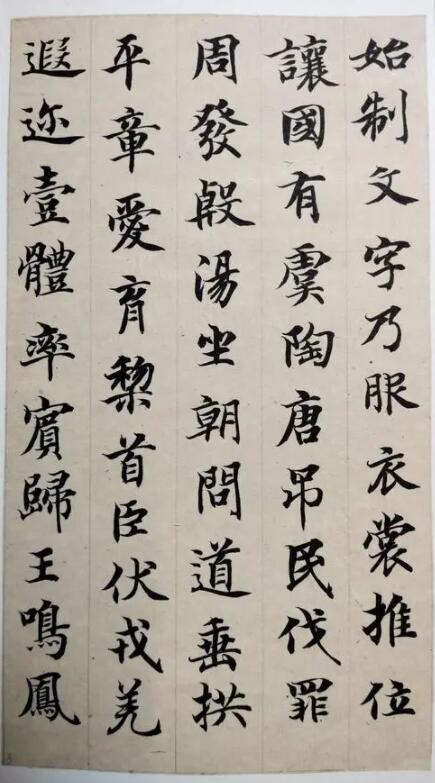 始制文字乃服衣裳推位
讓國有虞陶唐吊民伐罪
周發殷湯坐朝問道垂拱
平章愛育黎首臣伏戎羌
遐迩壹體率賓歸王鳴鳳